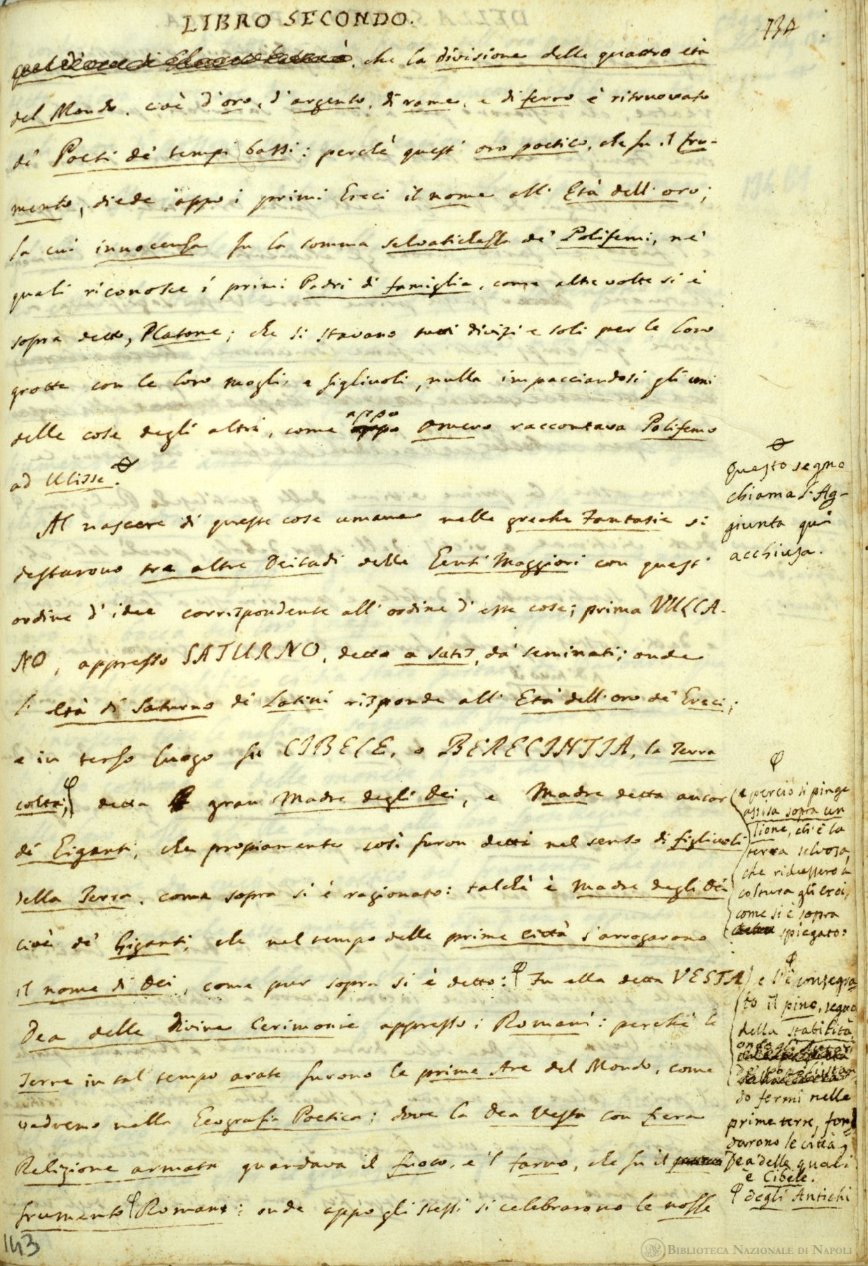 LIBRO SECONDO.
134
che la divisione delle quattro età
del Mondo, cioè d'oro, d'argento, di rame, e di ferro è ritruovato
de' Poeti de' tempi bassi: perchè quest' oro poetico, che fu il fru-
mento, diede appo i primi Greci il nome all' Età dell' oro;
la cui innocenza fu la somma selvatichezza de' Polifemi, ne'
quali riconosce i primi Padri di famiglia, come altre volte si è
sopra detto, Platone; che si stavano tutti divisi e soli per le loro
grotte con le loro mogli, e figliuoli, nulla impacciandosi gli uni
delle cose degli altri, come appo Omero raccontava Polifemo
ad Ulisse.
Questo segno
chiama l'Ag-
giunta quì
acchiusa.
Al nascere di queste cose umane nelle greche Fantasie si
destarono tra altre Deitadi delle Genti Maggiori con quest'
ordine d' idee corrispondente all' ordine d' esse cose; prima VULCA-
NO, appresso SATURNO, detto a satis, da' seminati; onde
l' età di Saturno de' Latini risponde all' Età dell' oro de' Greci;
e in terzo luogo fu CIBELE, o BERECINTIA, la Terra
colta; detta gran Madre degli Dei, e Madre detta ancor
de' Giganti, che propiamente così furon detti nel senso di figliuoli
della Terra, come sopra si è ragionato: talchè è Madre degli Dei
cioè de' Giganti, che nel tempo delle prime città s'arrogarono
il nome di Dei, come pur sopra si è detto: Fu ella detta VESTA
Dea delle divine Cerimonie appresso i Romani: perchè le
Terre in tal tempo arate furono le prime Are del Mondo, come
vedremo nella Geografia Poetica; dove la Dea Vesta con fiera
Religione armata guardava il fuoco, e 'l farro, che fu il
frumento Romani: onde appo gli stessi si celebrarono le nozze
e perciò si pinge
assisa sopra un
lione, ch'è la
terra selvosa,
che ridussero a
coltura gli Eroi,
come si è sopra
spiegato:
e l'è consegra-
to il pino, segno
della stabilità
onde gli
do fermi nelle
prime terre, fon-
darono le città,
Dea delle quali
è Cibele.
degli Antichi
143
BIBLIOTECA NAZIONALE DI NAPOLI